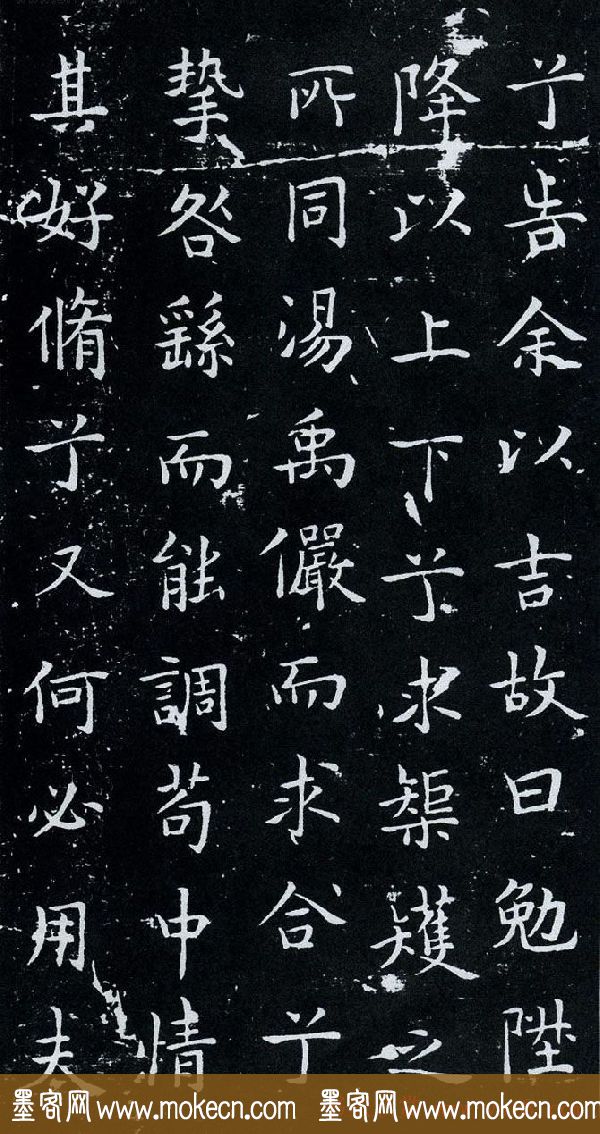 兮告余以吉故曰勉陞
降以上下兮求榘矱之
所同湯禹儼而求合兮
摯咎繇而能調苟中情
其好脩兮又何必用夫
墨客网 www.mokecn.com 墨客网 www.mokecn.com